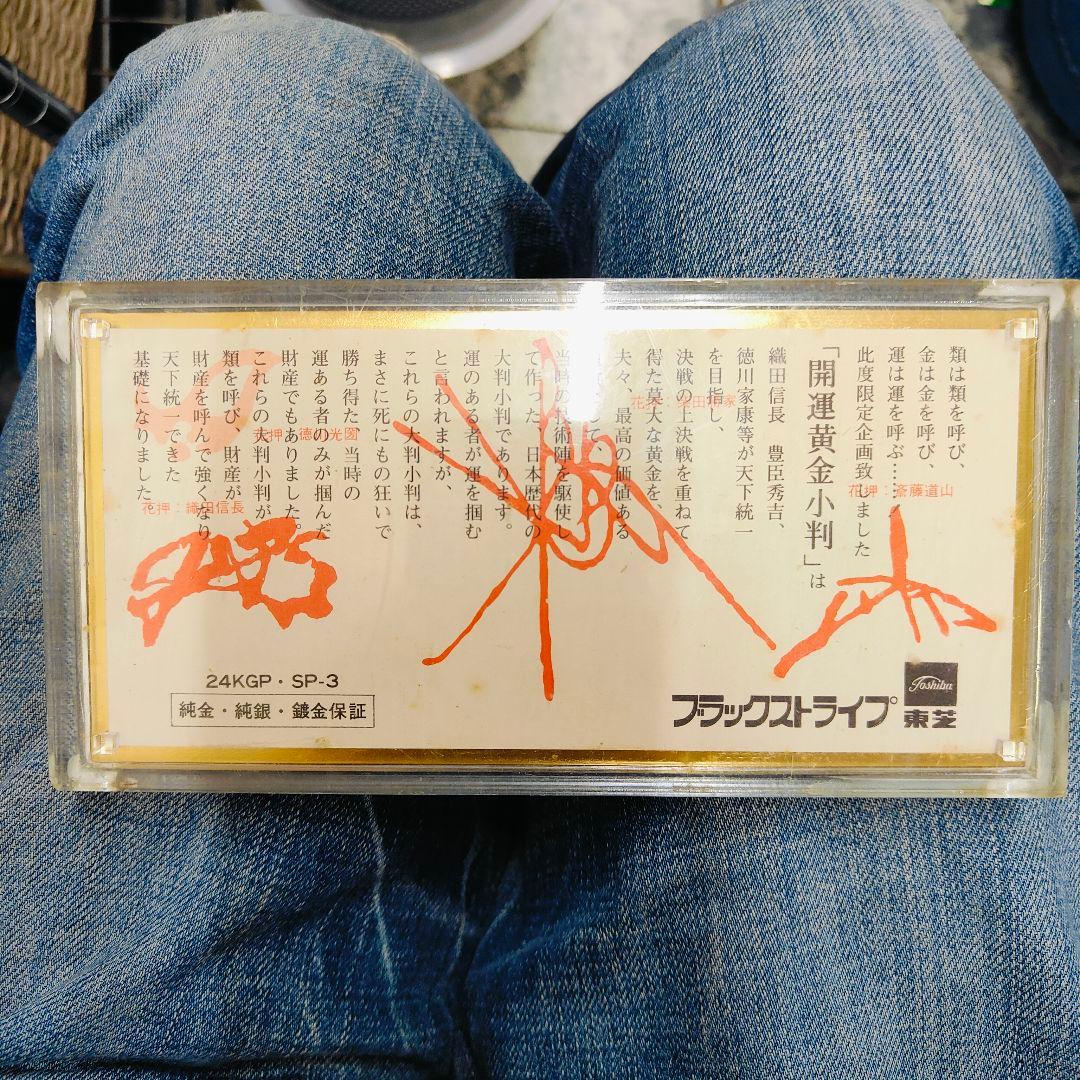 類は類を呼び、
金は金を呼び、
運は運を呼ぶ……
此度限定企画致しました
「開運黄金小判」は
織田信長 豊臣秀吉、
徳川家康等が天下統一
を目指し、
決戦の上決戦を重ねて
得た莫大な黄金を、
夫々、最高の価値ある
て、
当時の技術陣を駆使し
て作った、日本歴代の
大判小判であります。
運のある者が運を掴む
と言われますが、
これらの大判小判は、
まさに死にもの狂いで
勝ち得た、当時の
運ある者のみが掴んだ
財産でもありました。
これらの大判小判が
類を呼び、財産が
財産を呼んで強くなり
天下統一できた
基礎になりました
花押：斎藤道山
花押：織田信長
24KGP・SP-3
純金・純銀・鍍金保証
ブラックストライプ
Toshiba
東芝